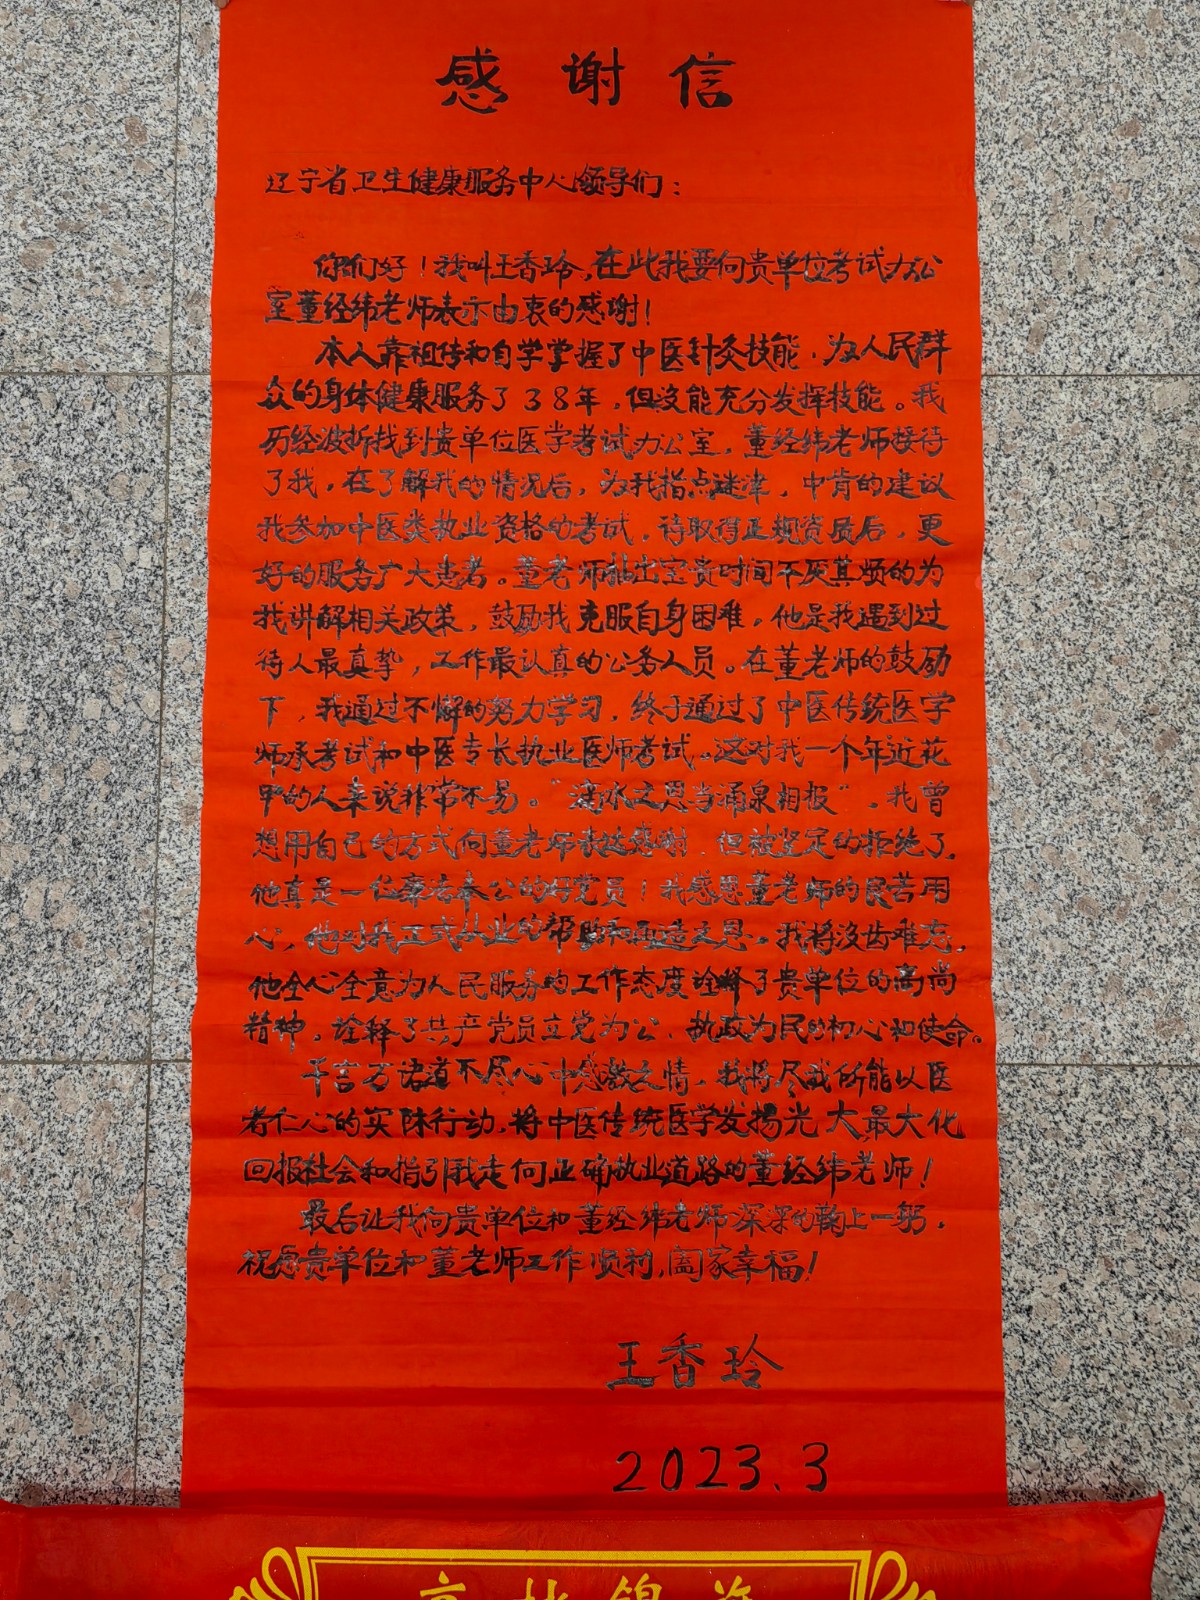 感谢信
辽宁省卫生健康服务中心领导们：
你们好！我叫王香玲，在此我要向贵单位考试办公
室董经纬老师表示由衷的感谢！
本人靠祖传和自学掌握了中医针灸技能，为人民群
众的身体健康服务了38年，但没能充分发挥技能。我
历经波折找到贵单位医学考试办公室，董经纬老师接待
了我，在了解我的情况后，为我指点迷津，中肯的建议
我参加中医类执业资格的考试，待取得正规资质后，更
好的服务广大患者。董老师抽出宝贵时间不厌其烦的为
我讲解相关政策，鼓励我克服自身困难，他是我遇到过
待人最真挚，工作最认真的公务人员。在董老师的鼓励
下，我通过不懈的努力学习，终于通过了中医传统医学
师承考试和中医专长执业医师考试。这对我一个年近花
甲的人来说非常不易。“滴水之恩当涌泉相报”。我曾
想用自己的方式向董老师表达感谢，但被坚定的拒绝了。
他真是一位廉洁奉公的好党员！我感恩董老师的良苦用
心，他对我正式从业的帮助和再造之恩，我将没齿难忘。
他全心全意为人民服务的工作态度诠释了贵单位的高尚
精神，诠释了共产党员立党为公、执政为民的初心和使命。
千言万语道不尽心中感激之情，我将尽我所能以医
者仁心的实际行动，将中医传统医学发扬光大，最大化
回报社会和指引我走向正确执业道路的董经纬老师！
最后让我向贵单位和董经纬老师深深的鞠上一躬，
祝愿贵单位和董老师工作顺利，阖家幸福！
王香玲
2023.3